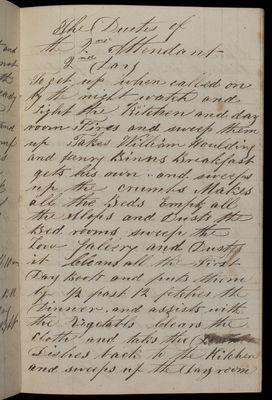 The Duties of
the 2nd Attendant
2nd Day
To get up when called on
by the night watch and
Light the Kitchen and day
room Fires and sweep them
up Takes William Houlding
and Henry Binns Breakfast
gets his own and sweeps
up the crumbs Makes
all the Beds Empty all
the Slops and Dusts the
Bed rooms sweep the
Low Gallery and Dusts
it Cleans all the First
Day Boots and puts them
by ½ past 12 fetches the
Dinner and assists with
the Vegetables Clears the
Cloth and takes the
Dishes back to the Kitchen
and sweeps up the Day room